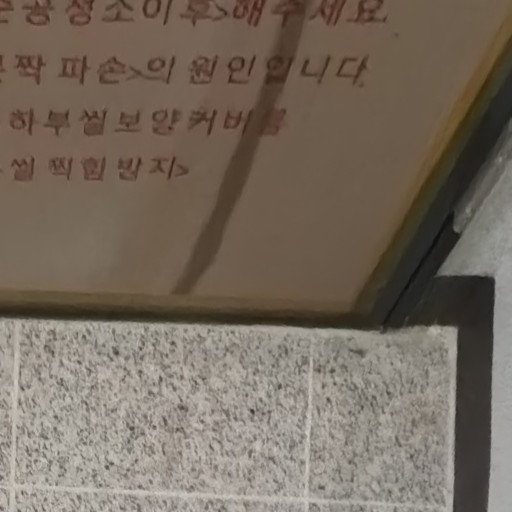 공정소이후>해주세요
짝 파손>의 원인입니다
하부씰보양커버를
씰 찍힘방지>